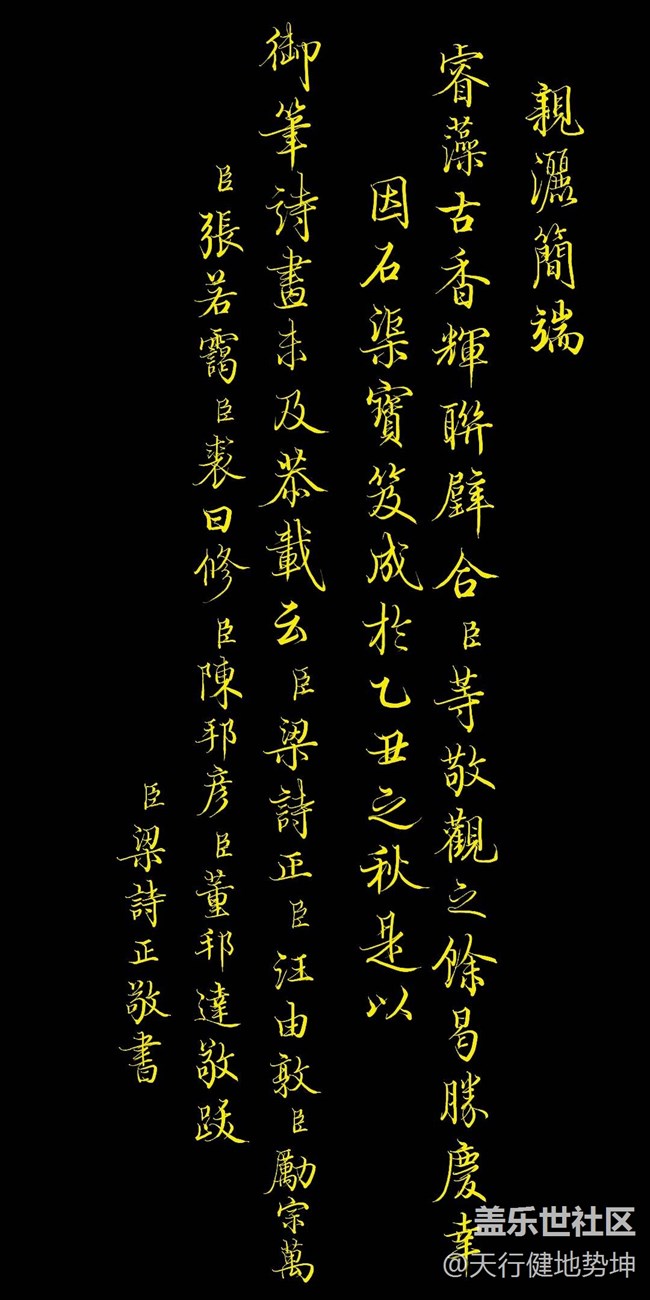 親灑簡端
睿藻古香輝聯璧合臣等敬觀之餘曷勝慶幸
因石渠寶笈成於乙丑之秋是以
御筆詩畫未及恭載云臣梁詩正臣汪由敦臣勵宗萬
臣張若靄臣裘曰修臣陳邦彥臣董邦達敬跋
臣梁詩正敬書
盖乐世社区
@天行健地势坤